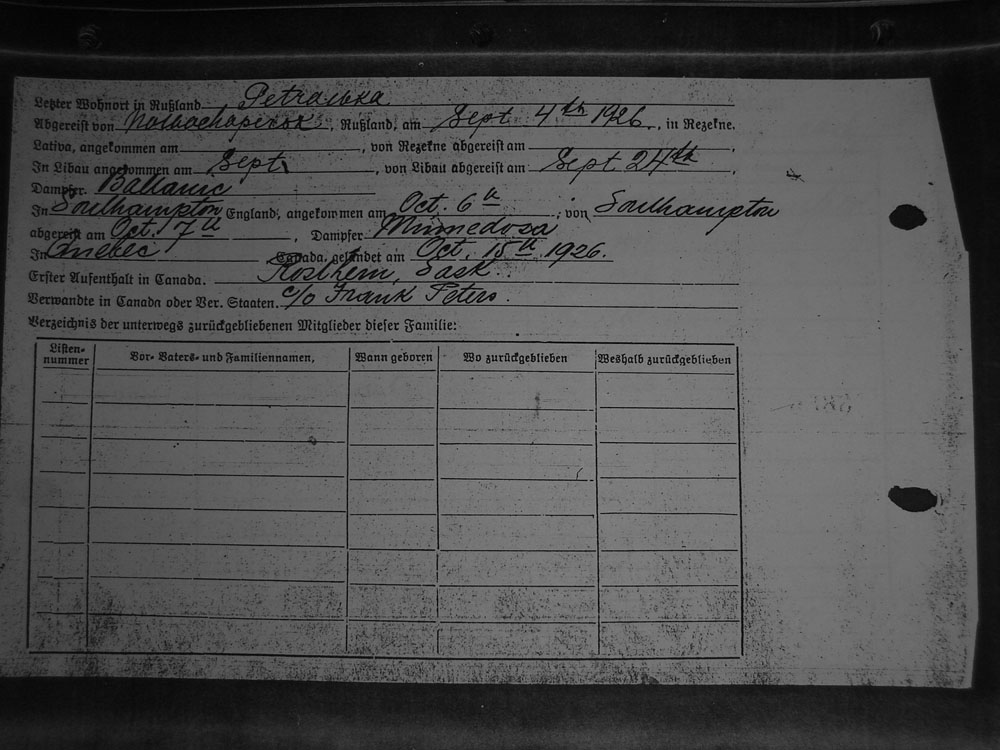 Letzter Wohnort in Rußland Petrawka
Abgereist von Nowochopersk, Rußland, am Sept 4th 1926, in Rezekne.
Lativa, angekommen am , von Rezekne abgereist am ,
In Libau angekommen am Sept. , von Libau abgereist am Sept 24th ,
Dampfer. Baltanic
In Southampton England, angekommen am Oct. 6th , von Southampton
abgereist am Oct. 7th , Dampfer Minnedosa
In Quebec Canada, gelandet am Oct. 15th 1926.
Erster Aufenthalt in Canada. Rosthern, Sask.
Verwandte in Canada oder Ver. Staaten. c/o Frank Peters.
Verzeichnis der unterwegs zurückgebliebenen Mitglieder dieser Familie:
Listen-nummer Vor- Vaters- und Familiennamen, Wann geboren Wo zurückgeblieben Weshalb zurückgeblieben